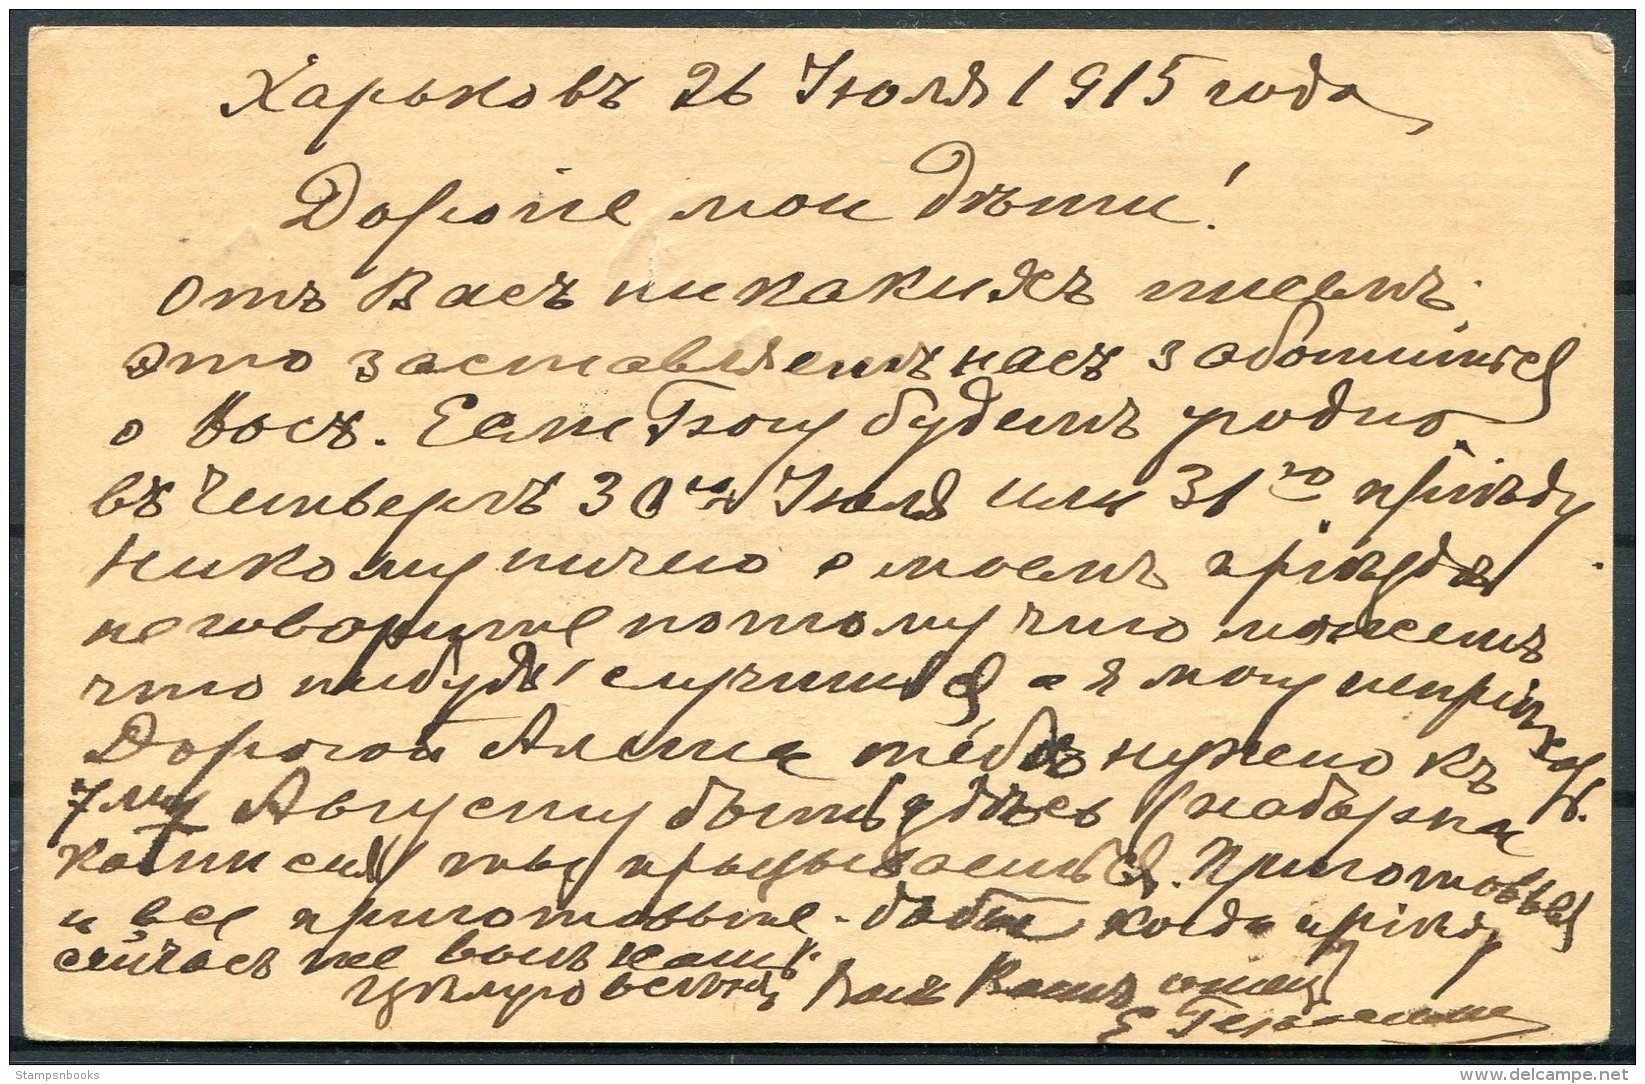 Харьковъ 26 Іюля 1915 года
Дорогіе мои дѣти!
Отъ Васъ никакихъ писемъ,
это заставляетъ насъ заботиться
о Васъ. Если Богу будетъ угодно
въ Четвергъ 30го Іюля или 31го пріѣду
Никому ничего о моемъ пріѣздѣ
не говорите потому что можетъ
что нибудь случиться а я могу непріѣхать.
Дорогой Алеша тебѣ нужно къ
7му Августу быть здѣсь
ты призываешься. Приготовься
и все приготовьте когда пріѣду
сейчасъ же
Цѣлую Вашъ отецъ
Stampsnbooks
delcampe.net